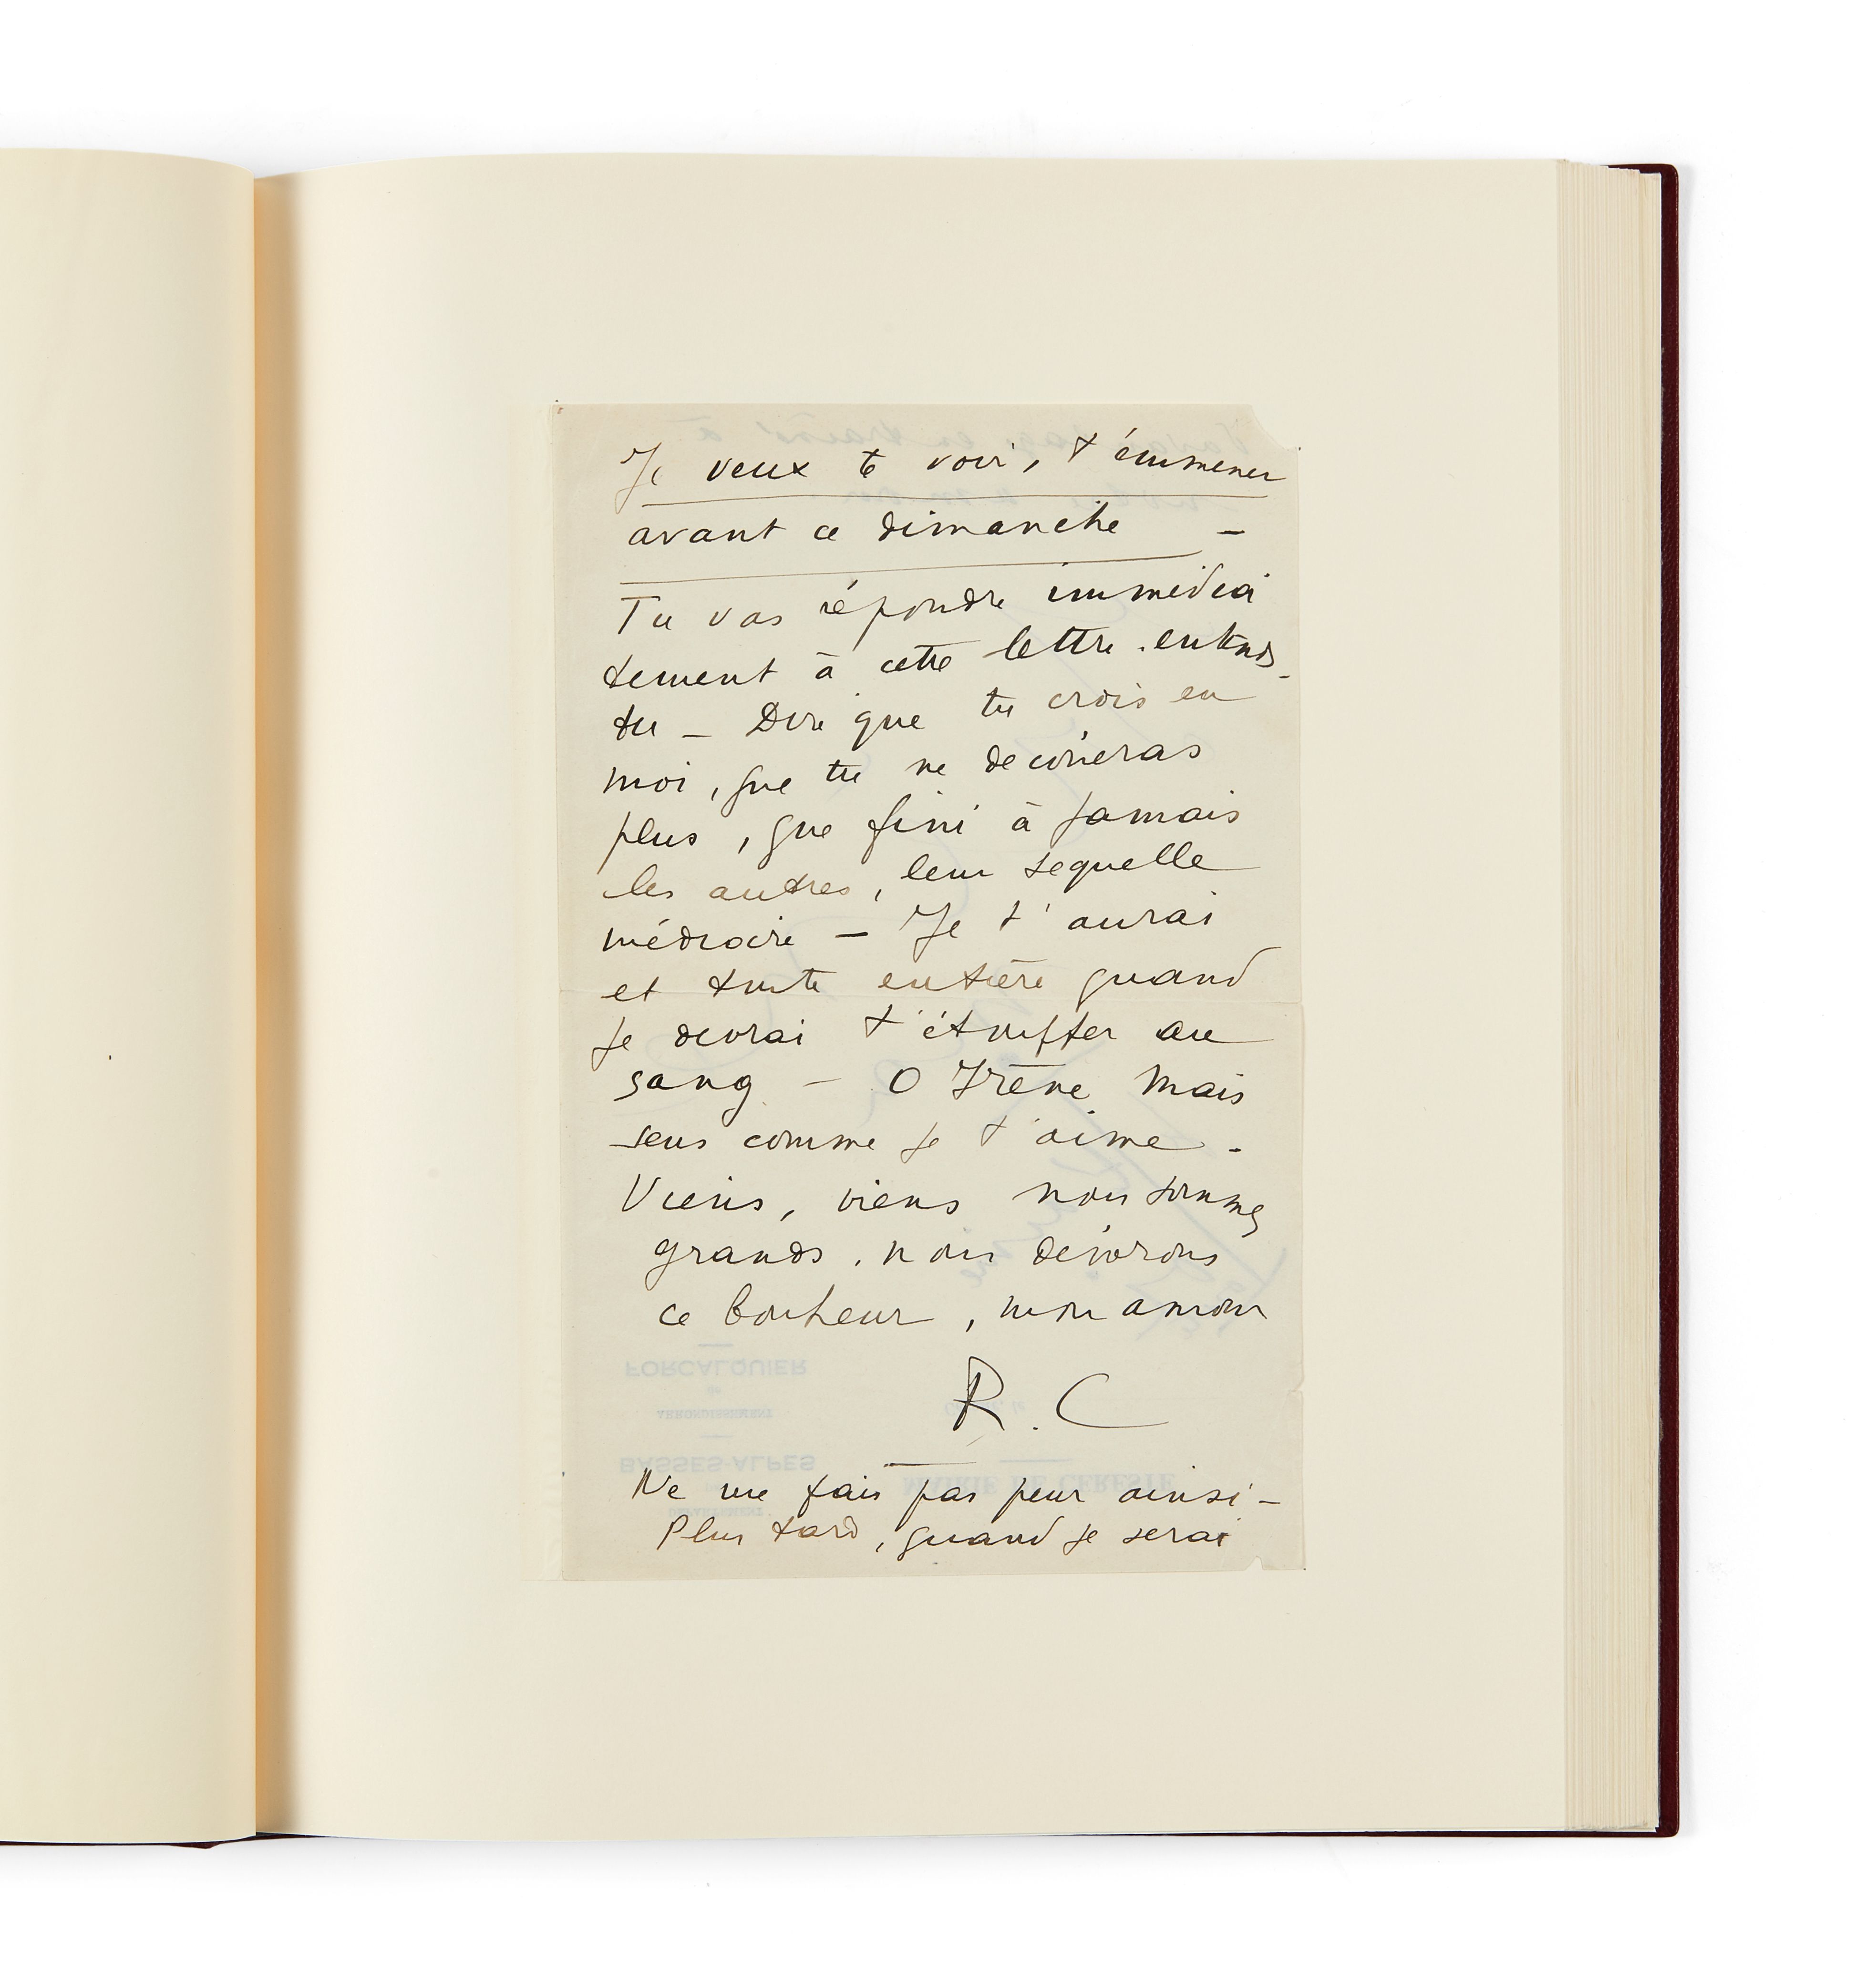 Je veux te voir, t'emmener
avant ce dimanche —
Tu vas répondre immédia
tement à cette lettre. entends-
tu — Dire que tu crois en
moi, que tu ne
plus, que fini à jamais
les autres, leur sequelle
médiocre — Je t'aurai
et toute entière quand
je devrai t'étouffer au
sang — O Irène mais
sens comme je t'aime -
Viens, viens nous sommes
grands. nous dévorons
ce bonheur, mon amour
R. C
Ne me fais pas peur ainsi —
Plus tard, quand je serai
FORCALQUIER
ARRONDISSEMENT
BASSES-ALPES
MAIRIE DE CÉRESTE
DÉPARTEMENT